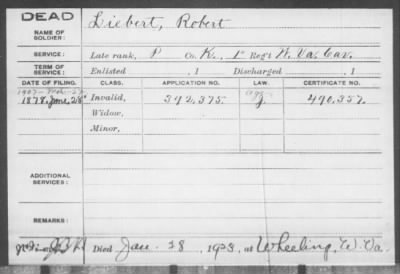 DEAD
NAME OF SOLDIER: Liebert, Robert
SERVICE: Late rank, P Co. K, 1st Reg't W. Va. Cav.
TERM OF SERVICE: Enlisted , 1 Discharged , 1
DATE OF FILING. CLASS. APPLICATION NO. LAW. CERTIFICATE NO.
1907
1878, June, 28 Invalid, 392,375. 490,357.
Widow,
Minor,
ADDITIONAL SERVICES:
REMARKS:
Died Jan. 28, 1928, at Wheeling, W. Va.